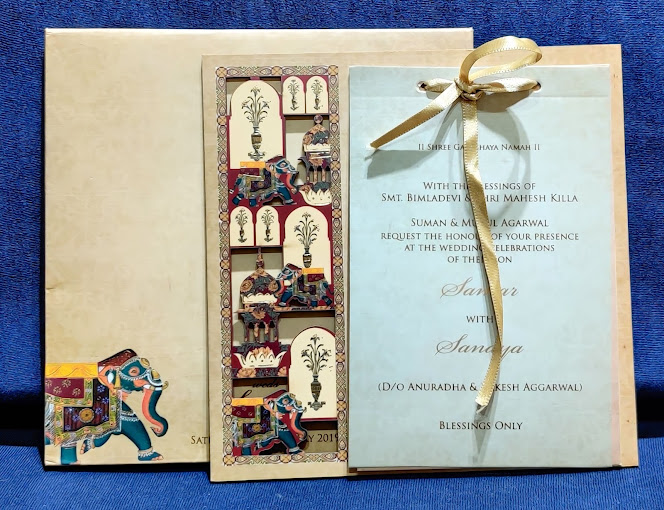 II Shree Namah II
With the blessings of
Smt. Bimladevi & Shri Mahesh Killa
Suman & Agarwal
request the of your presence
at the wedding celebrations
of the son
with
(D/o Anuradha & Aggarwal)
Blessings Only
2019